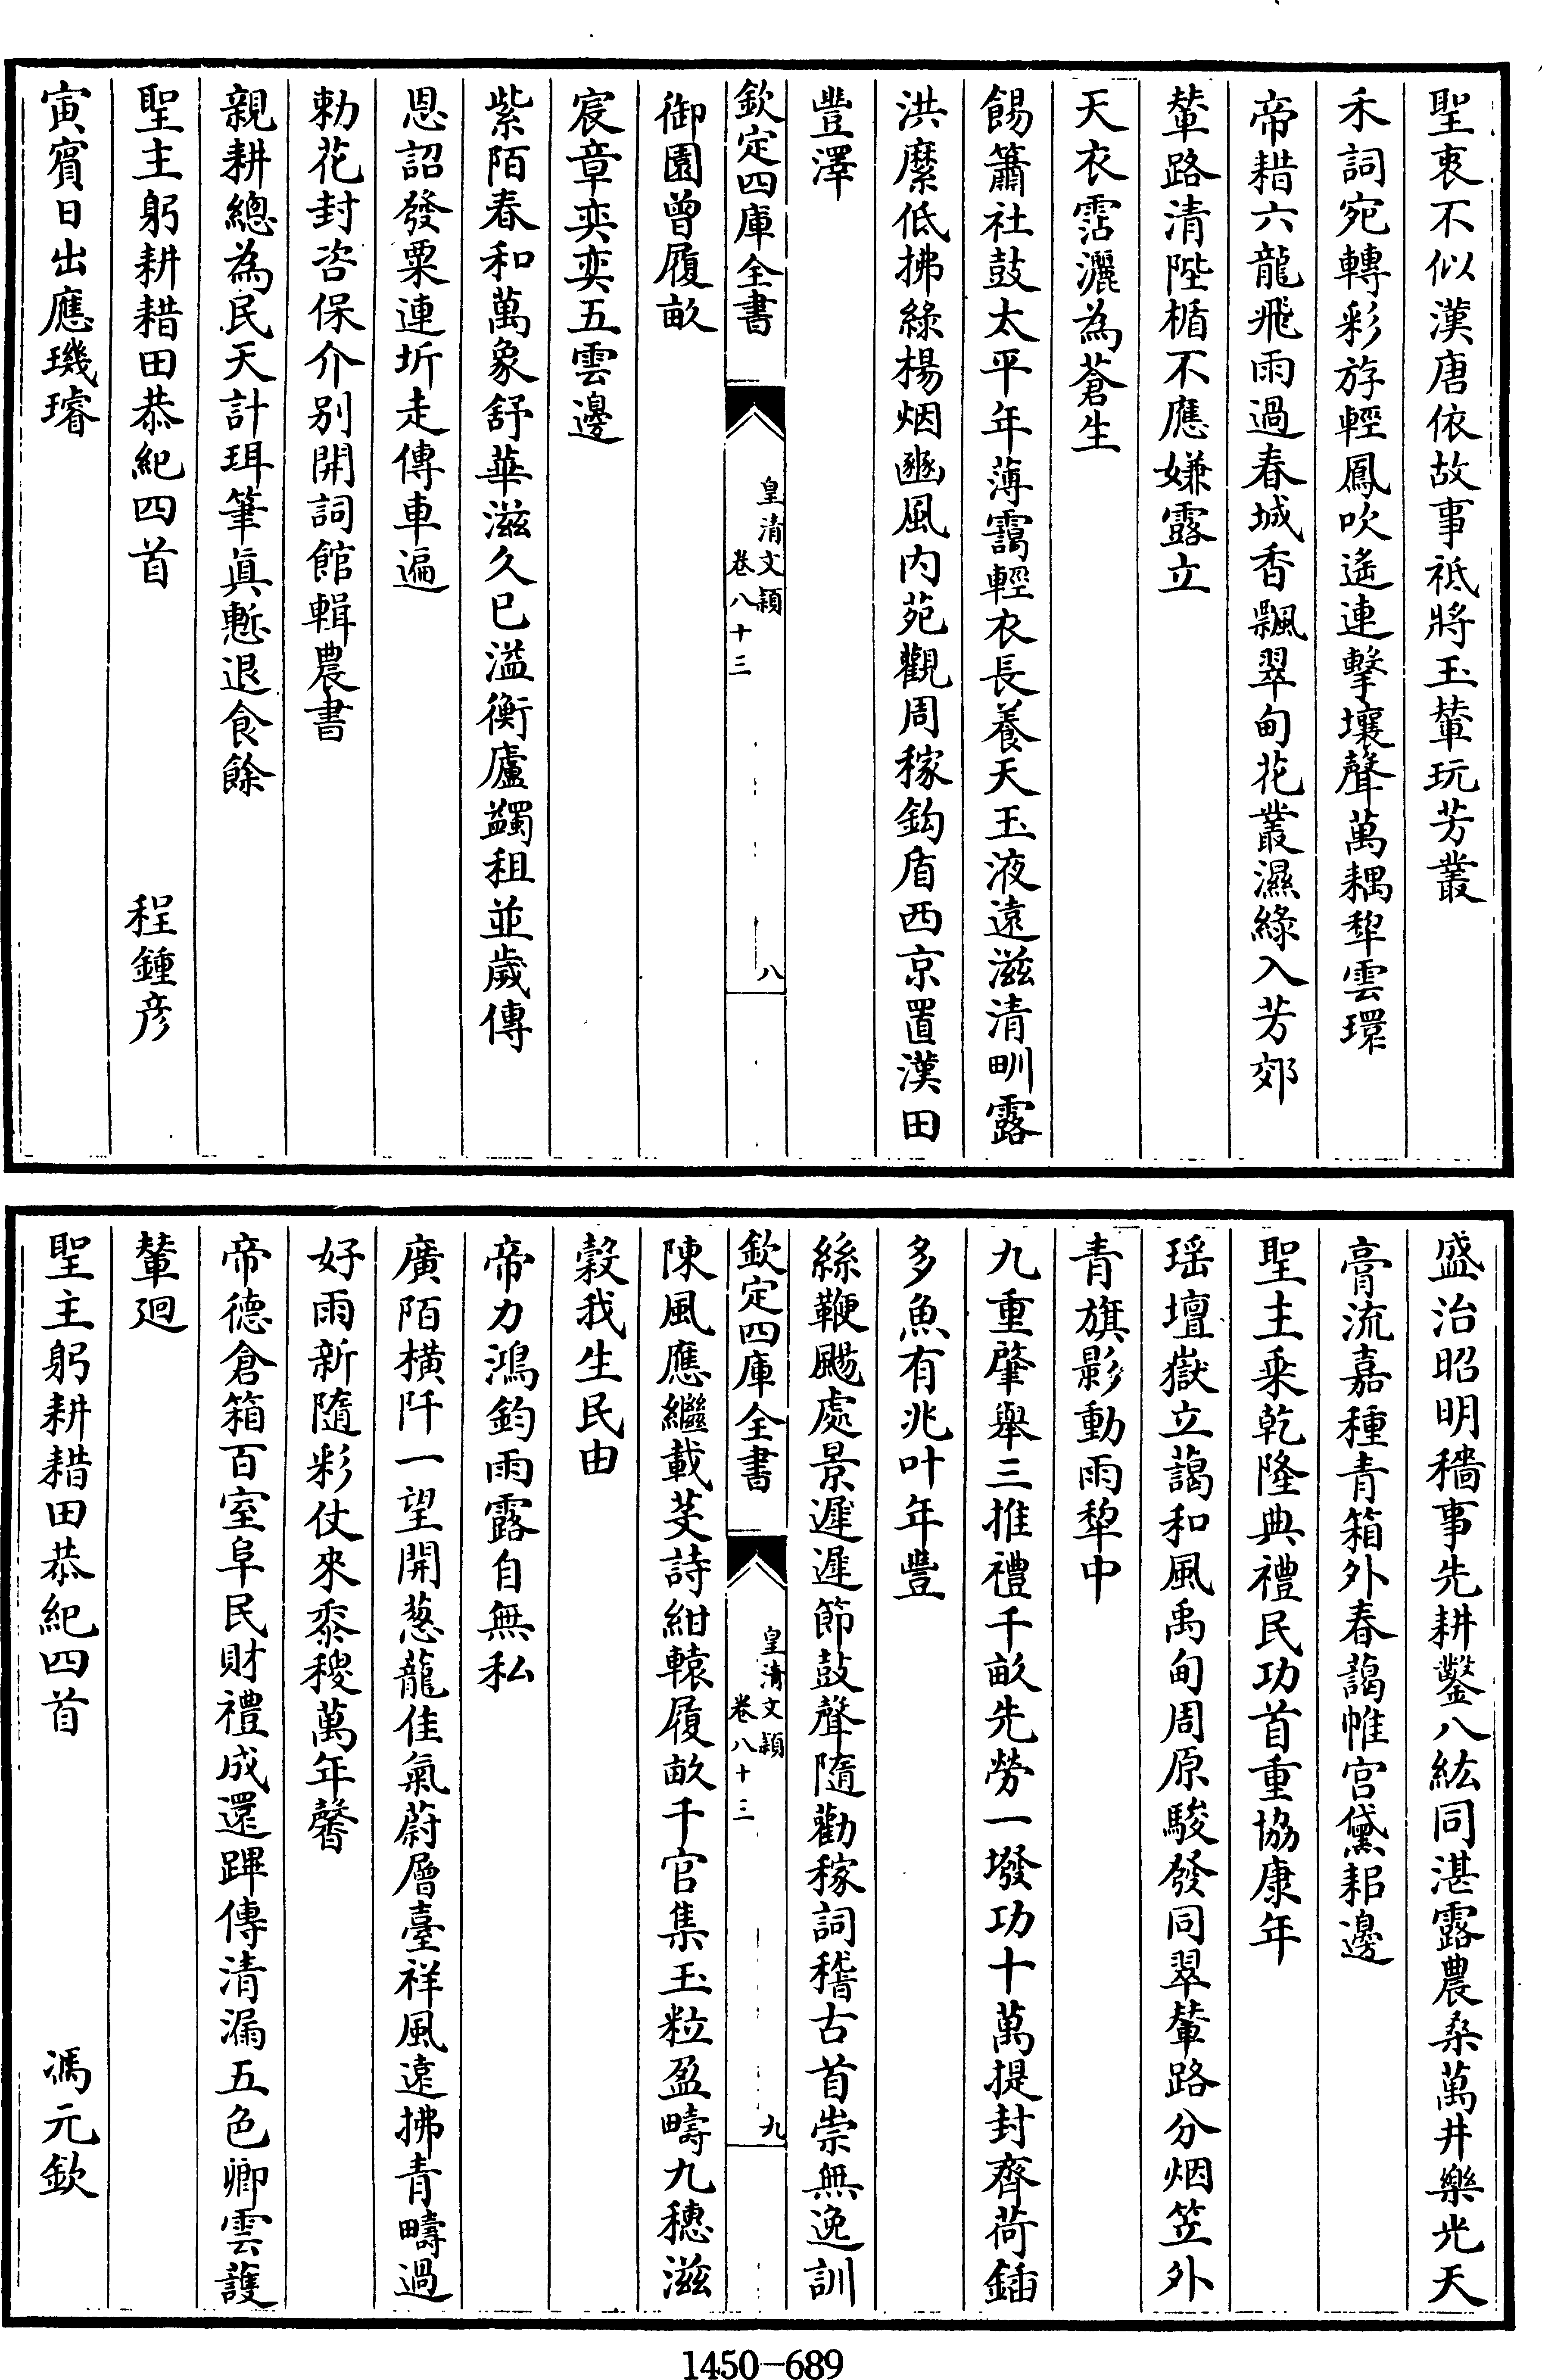 聖衷不似漢唐依故事祇將玉輦玩芳叢
禾詞宛轉彩斿輕鳳吹遙連擊壤聲萬耦犂雲環
帝耤六龍飛雨過春城香飄翠甸花叢濕綠入芳郊
輦路清陛楯不應嫌露立
天衣霑灑為蒼生
餳簫社鼓太平年薄靄輕衣長養天玉液遠滋清甽露
洪縻低拂綠楊烟豳風内苑觀周稼鈎盾西京置漢田
豐澤
欽定四庫全書
皇清文穎
卷八十三
八
御園曾履畝
宸章奕奕五雲邊
紫陌春和萬象舒華滋久已溢衡廬蠲租並歲傳
恩詔發粟連圻走傳車遍
勅花封咨保介别開詞館輯農書
親耕總為民天計珥筆真慙退食餘
聖主躬耕耤田恭紀四首 程鍾彦
寅賓日出應璣璿
盛治昭明穡事先耕鑿八紘同湛露農桑萬井樂光天
膏流嘉種青箱外春藹帷宫黛耜邊
聖主乘乾隆典禮民功首重協康年
瑶壇嶽立藹和風禹甸周原駿發同翠輦路分烟笠外
青旗影動雨犂中
九重肇舉三推禮千畝先勞一墢功十萬提封齊荷鍤
多魚有兆叶年豐
絲鞭颺處景遲遲節鼓聲隨勸稼詞稽古首崇無逸訓
欽定四庫全書
皇清文穎
卷八十三
九
陳風應繼載芟詩紺轅履畝千官集玉粒盈疇九穗滋
榖我生民由
帝力鴻鈞雨露自無私
廣陌橫阡一望開葱蘢佳氣蔚層臺祥風遠拂青疇過
好雨新隨彩仗來黍稷萬年馨
帝德倉箱百室阜民財禮成還蹕傳清漏五色卿雲䕶
輦廻
聖主躬耕耤田恭紀四首 馮元欽
1450—689